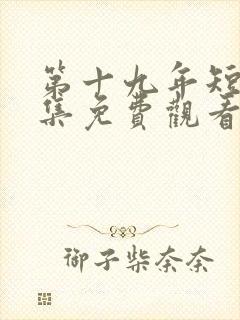 第十九年短
集免費觀看
御子柴奈奈